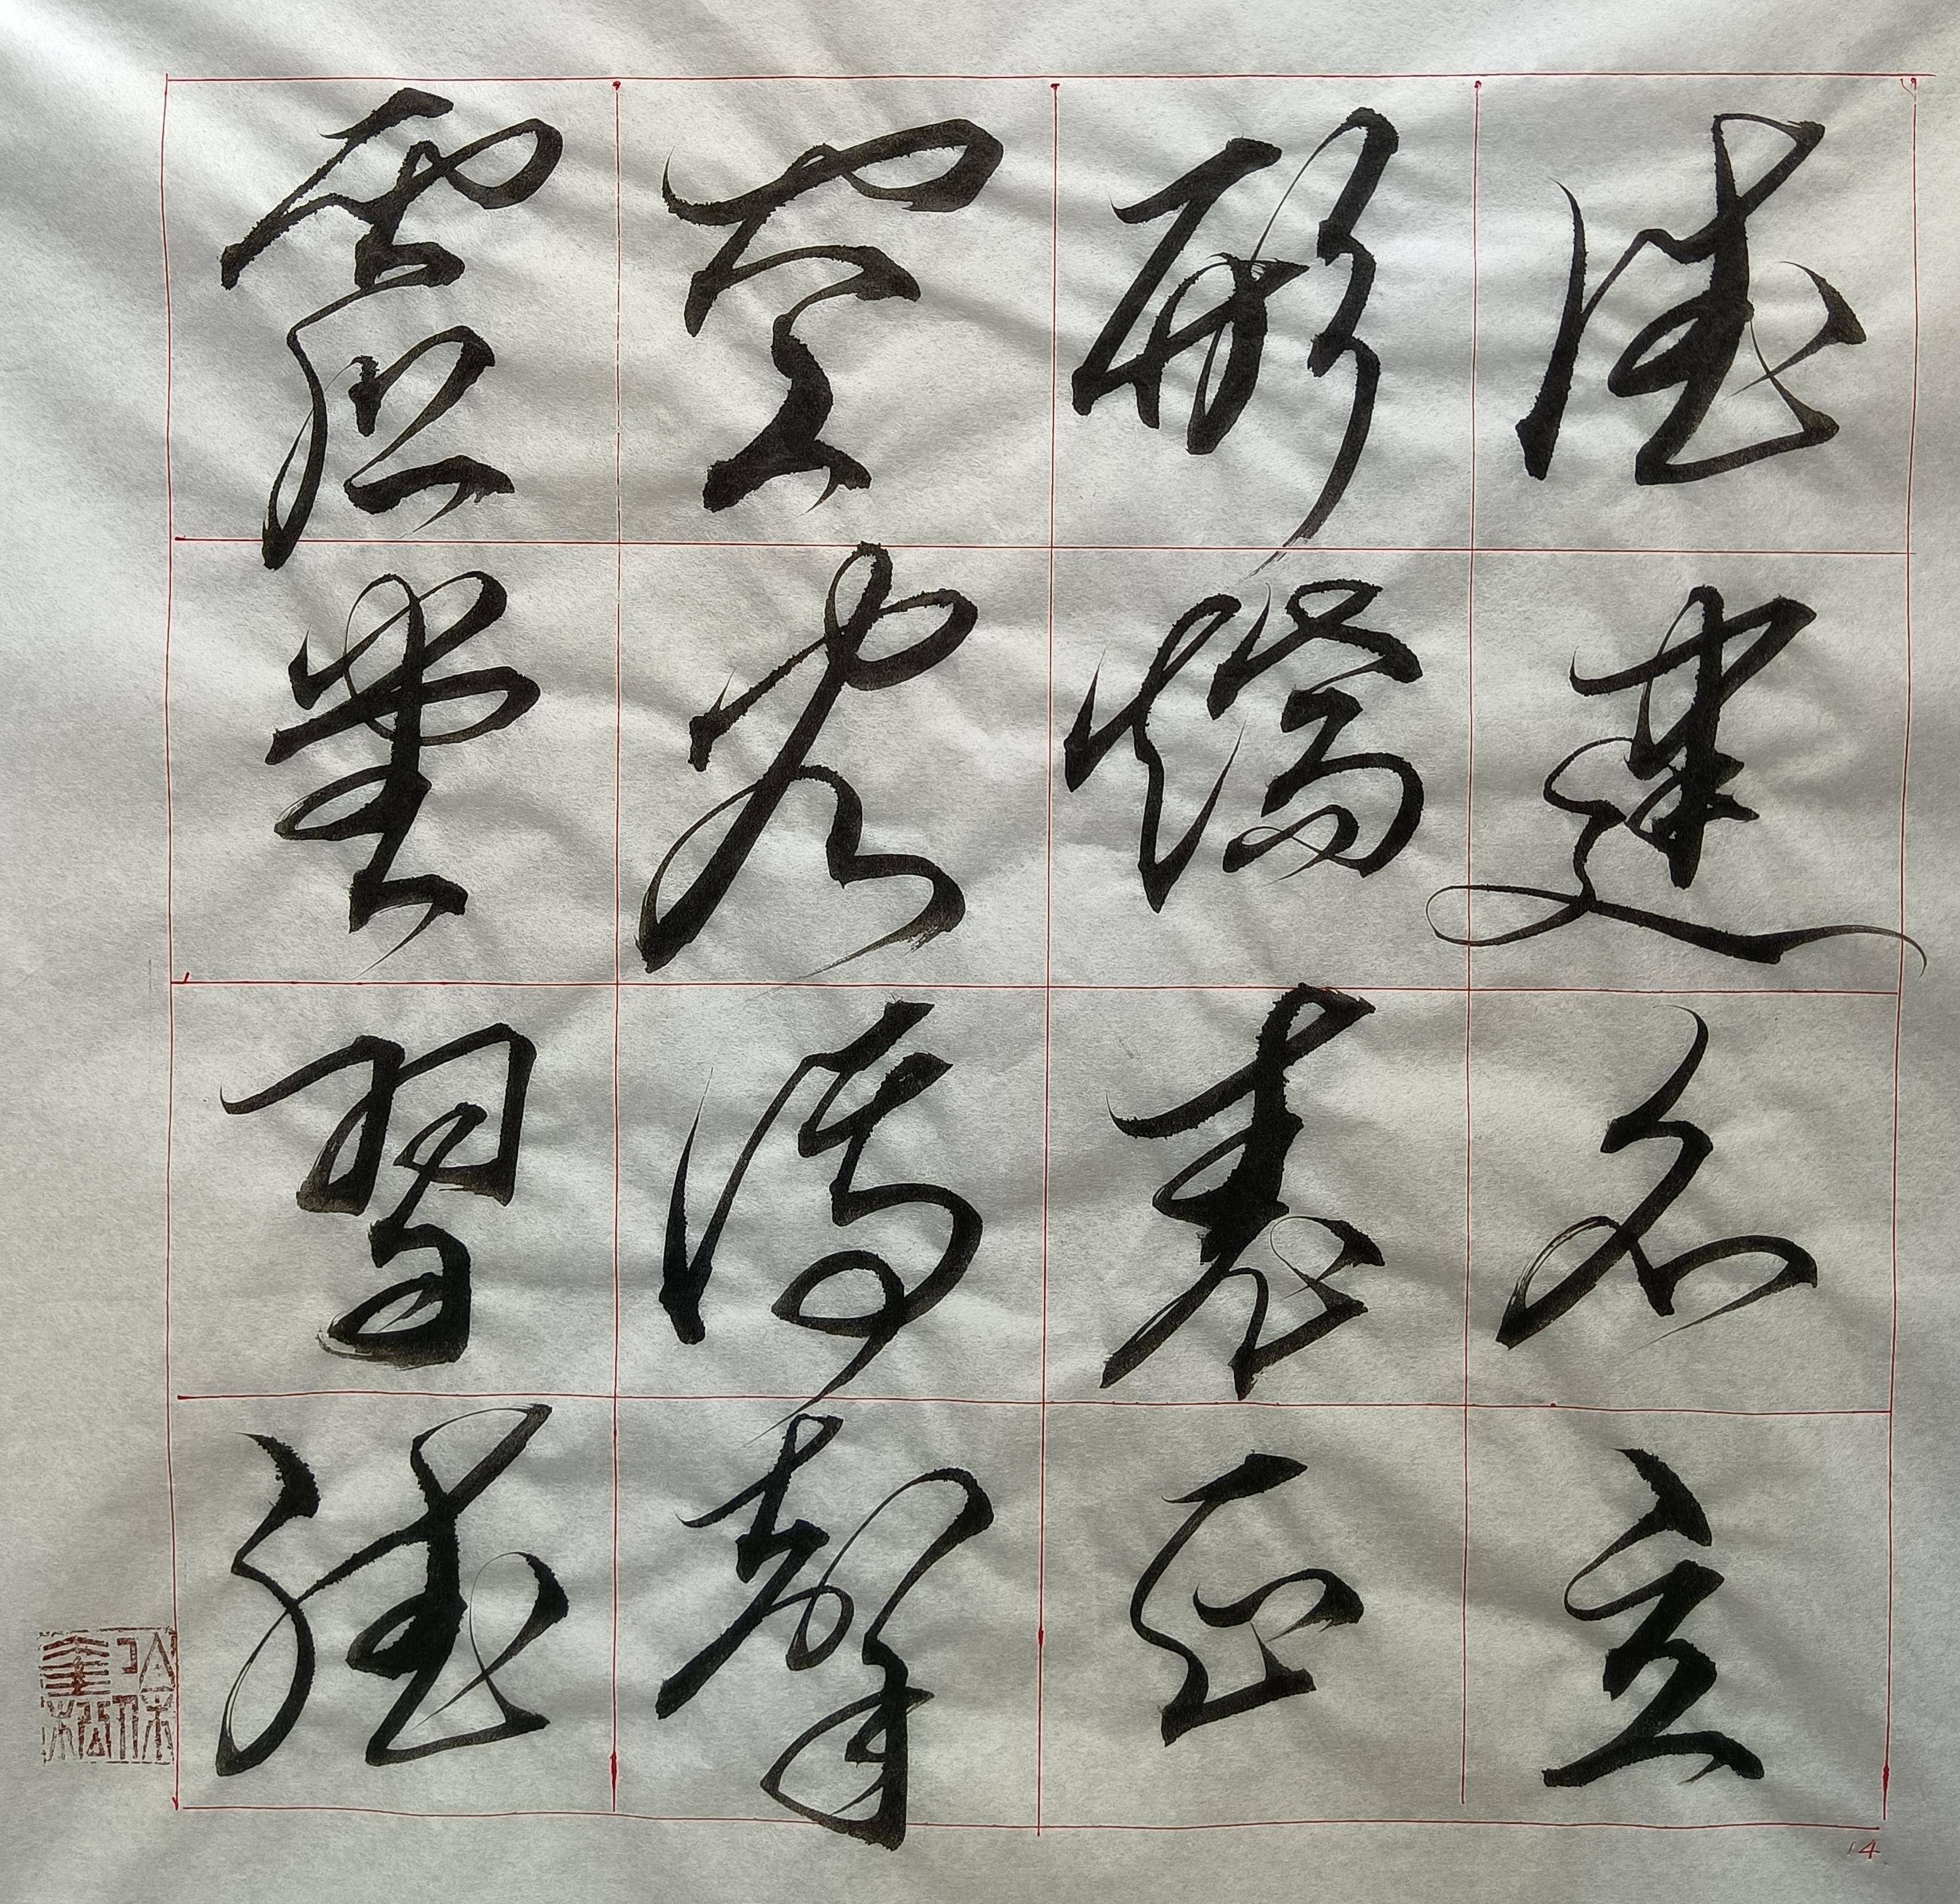 德建名立
形端表正
空谷傳聲
虛堂習聽
14